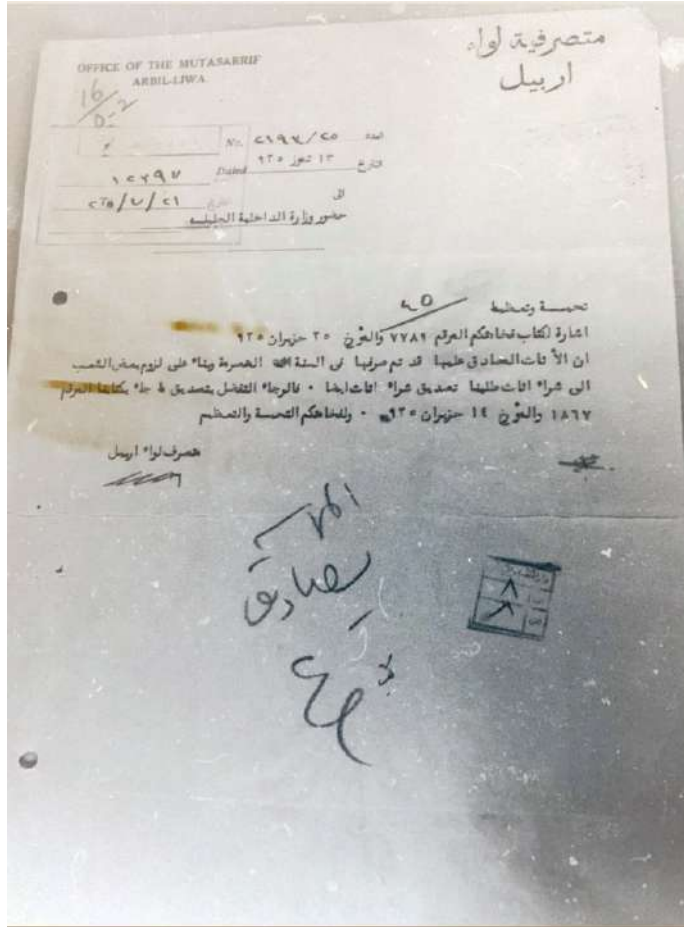 OFFICE OF THE MUTASARRIF
ARBIL-LIWA
متصرفية لواء
اربيل
16
No. ٢١٩٧/٢٥ العدد
Dated ١٣ تموز ٩٣٥ تاريخ
١٠٢٩٧
٩٣٥/٧/٢١
الى
حضور وزارة الداخلية الجليلة
٤٥
تحيسة وتعظيما
اشارة لكتاب فخامتكم المرقم ٧٧٨٩ والمؤرخ ٢٥ حزيران ٩٣٥
ان الأثاث المصادق عليها قد تم صرفها في السنة المنصرمة وبناء على لزوم بعض الشعب
الى شراء اثاث طلبنا تصديق شراء اثاث ايضا ٠ فالرجاء التفضل بتصديق ما جاء بكتابنا المرقم
١٨٦٧ والمؤرخ ١٤ حزيران ٩٣٥ ٠ ولفخامتكم التحيسة والتعظيم
متصرف لواء اربيل
يصادق